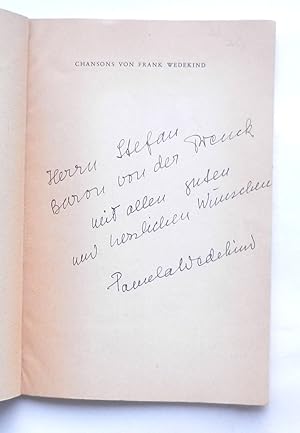 CHANSONS VON FRANK WEDEKIND
Herrn Stefan
Baron von der Trenck
mit allen guten
und herzlichen Wünschen
Pamela Wedekind